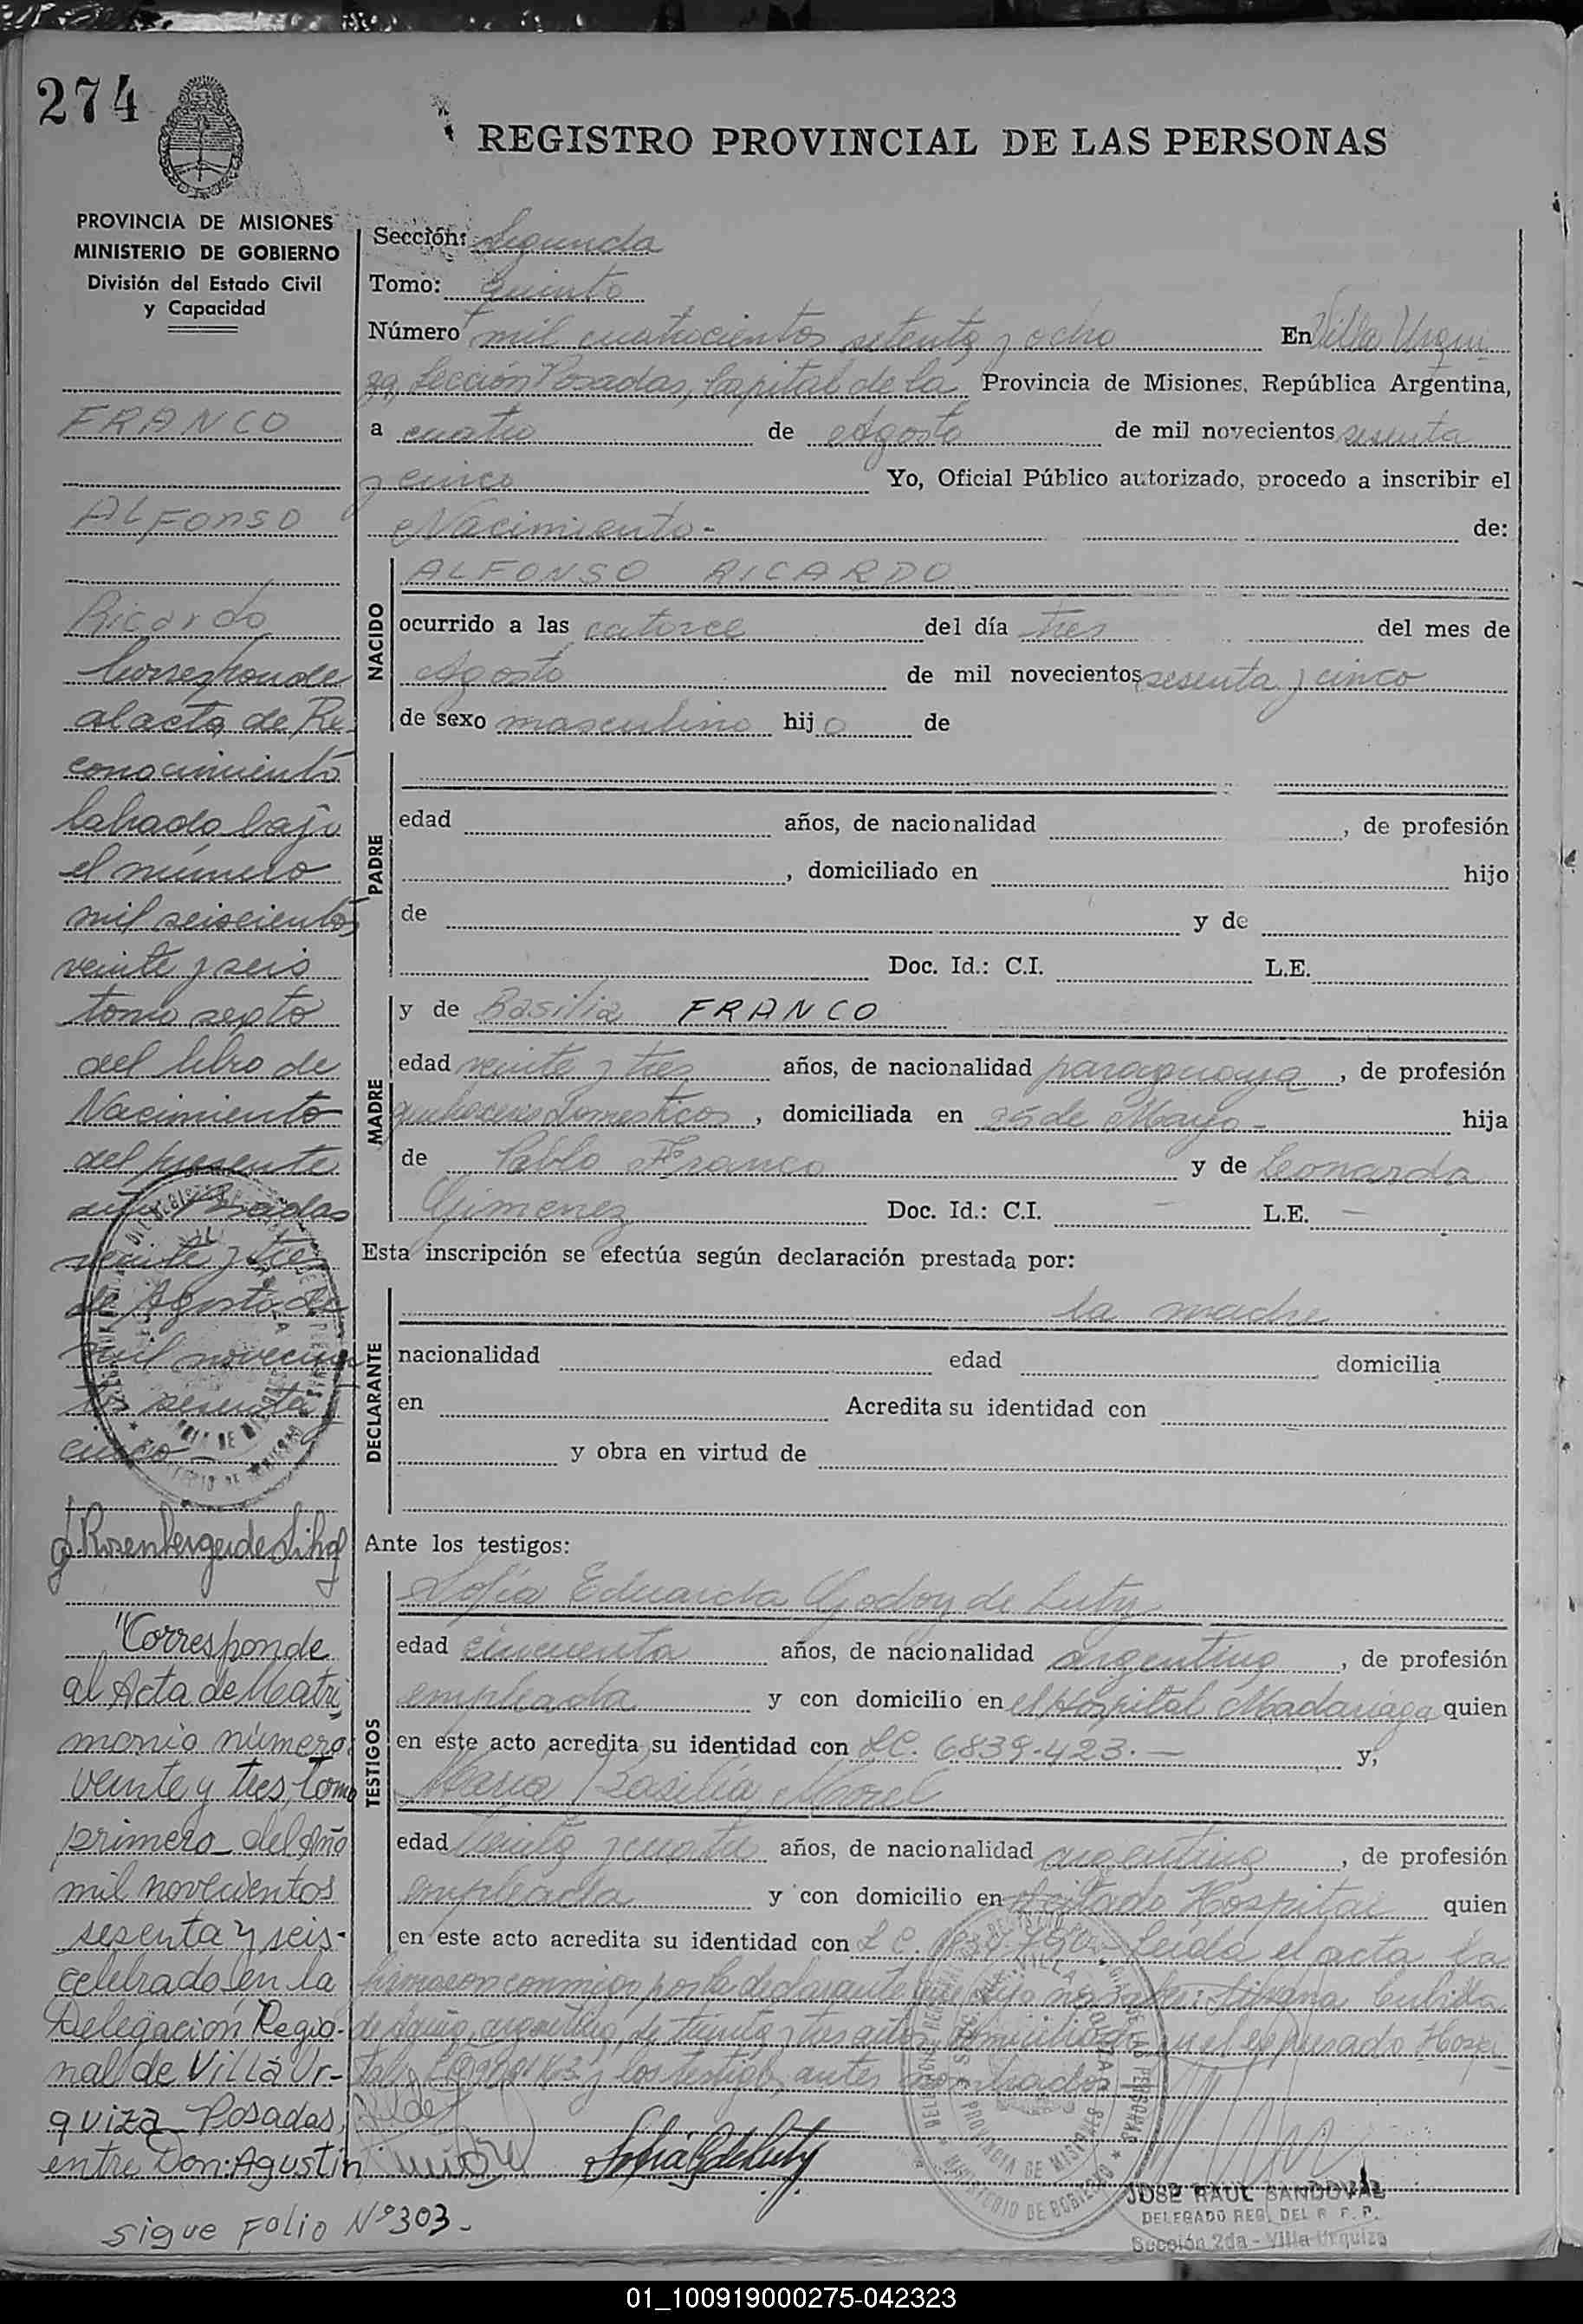 274
REGISTRO PROVINCIAL DE LAS PERSONAS
PROVINCIA DE MISIONES
MINISTERIO DE GOBIERNO
División del Estado Civil
y Capacidad
FRANCO
ALFONSO
Ricardo
Corresponde
al acta de Re
conocimiento
labrado bajo
el número
mil seiscientos
veinte y seis
tomo septo
del libro de
Nacimiento
del presente
año Posadas
veinte y tres
de Agosto de
mil novecien
tos sesenta y
cinco -
"Corresponde
al Acta de Matri
monio número
veinte y tres, Tomo
primero - del Año
mil novecientos
sesenta y seis-
celebrado en la
Delegación Regio-
nal de Villa Ur-
quiza - Posadas,
entre Don: Agustin
sigue Folio Nº 303.-
Sección: Segunda
Tomo: quinto
Número mil cuatrocientos setenta y ocho En Villa Urqui
za, Sección Posadas, Capital de la Provincia de Misiones, República Argentina,
a cuatro de Agosto de mil novecientos sesenta
y cinco Yo, Oficial Público autorizado, procedo a inscribir el
Nacimiento - de:
NACIDO
ALFONSO RICARDO
ocurrido a las catorce del día tres del mes de
Agosto de mil novecientos sesenta y cinco
de sexo masculino hijo de
PADRE
edad años, de nacionalidad , de profesión
, domiciliado en hijo
de y de
Doc. Id.: C.I. L.E.
MADRE
y de Basilia FRANCO
edad veinte y tres años, de nacionalidad paraguaya, de profesión
quehaceres domesticos, domiciliada en 25 de Mayo - hija
de Pablo Franco y de Leonarda
Gimenez Doc. Id.: C.I. — L.E. —
Esta inscripción se efectúa según declaración prestada por:
DECLARANTE
la madre
nacionalidad edad domicilia
en Acredita su identidad con
y obra en virtud de
Ante los testigos:
TESTIGOS
Sofía Eduarda Godoy de Luty
edad cincuenta años, de nacionalidad argentina, de profesión
empleada y con domicilio en el Hospital Madariaga quien
en este acto acredita su identidad con LC. 6839.423.— y,
Maria Basilia Morel
edad años, de nacionalidad argentina, de profesión
empleada y con domicilio en citado Hospital quien
en este acto acredita su identidad con L C. Leída el acta la
firmaron conmigo por la declarante que dijo no saber:
argentina, de treinta y tres años domiciliada en el expresado Hospi
tal, y los testigos antes nombrados
JOSE RAUL SANDOVAL
DELEGADO REG. DEL R. P. P.
Sección 2da - Villa Urquiza
01_100919000275-042323